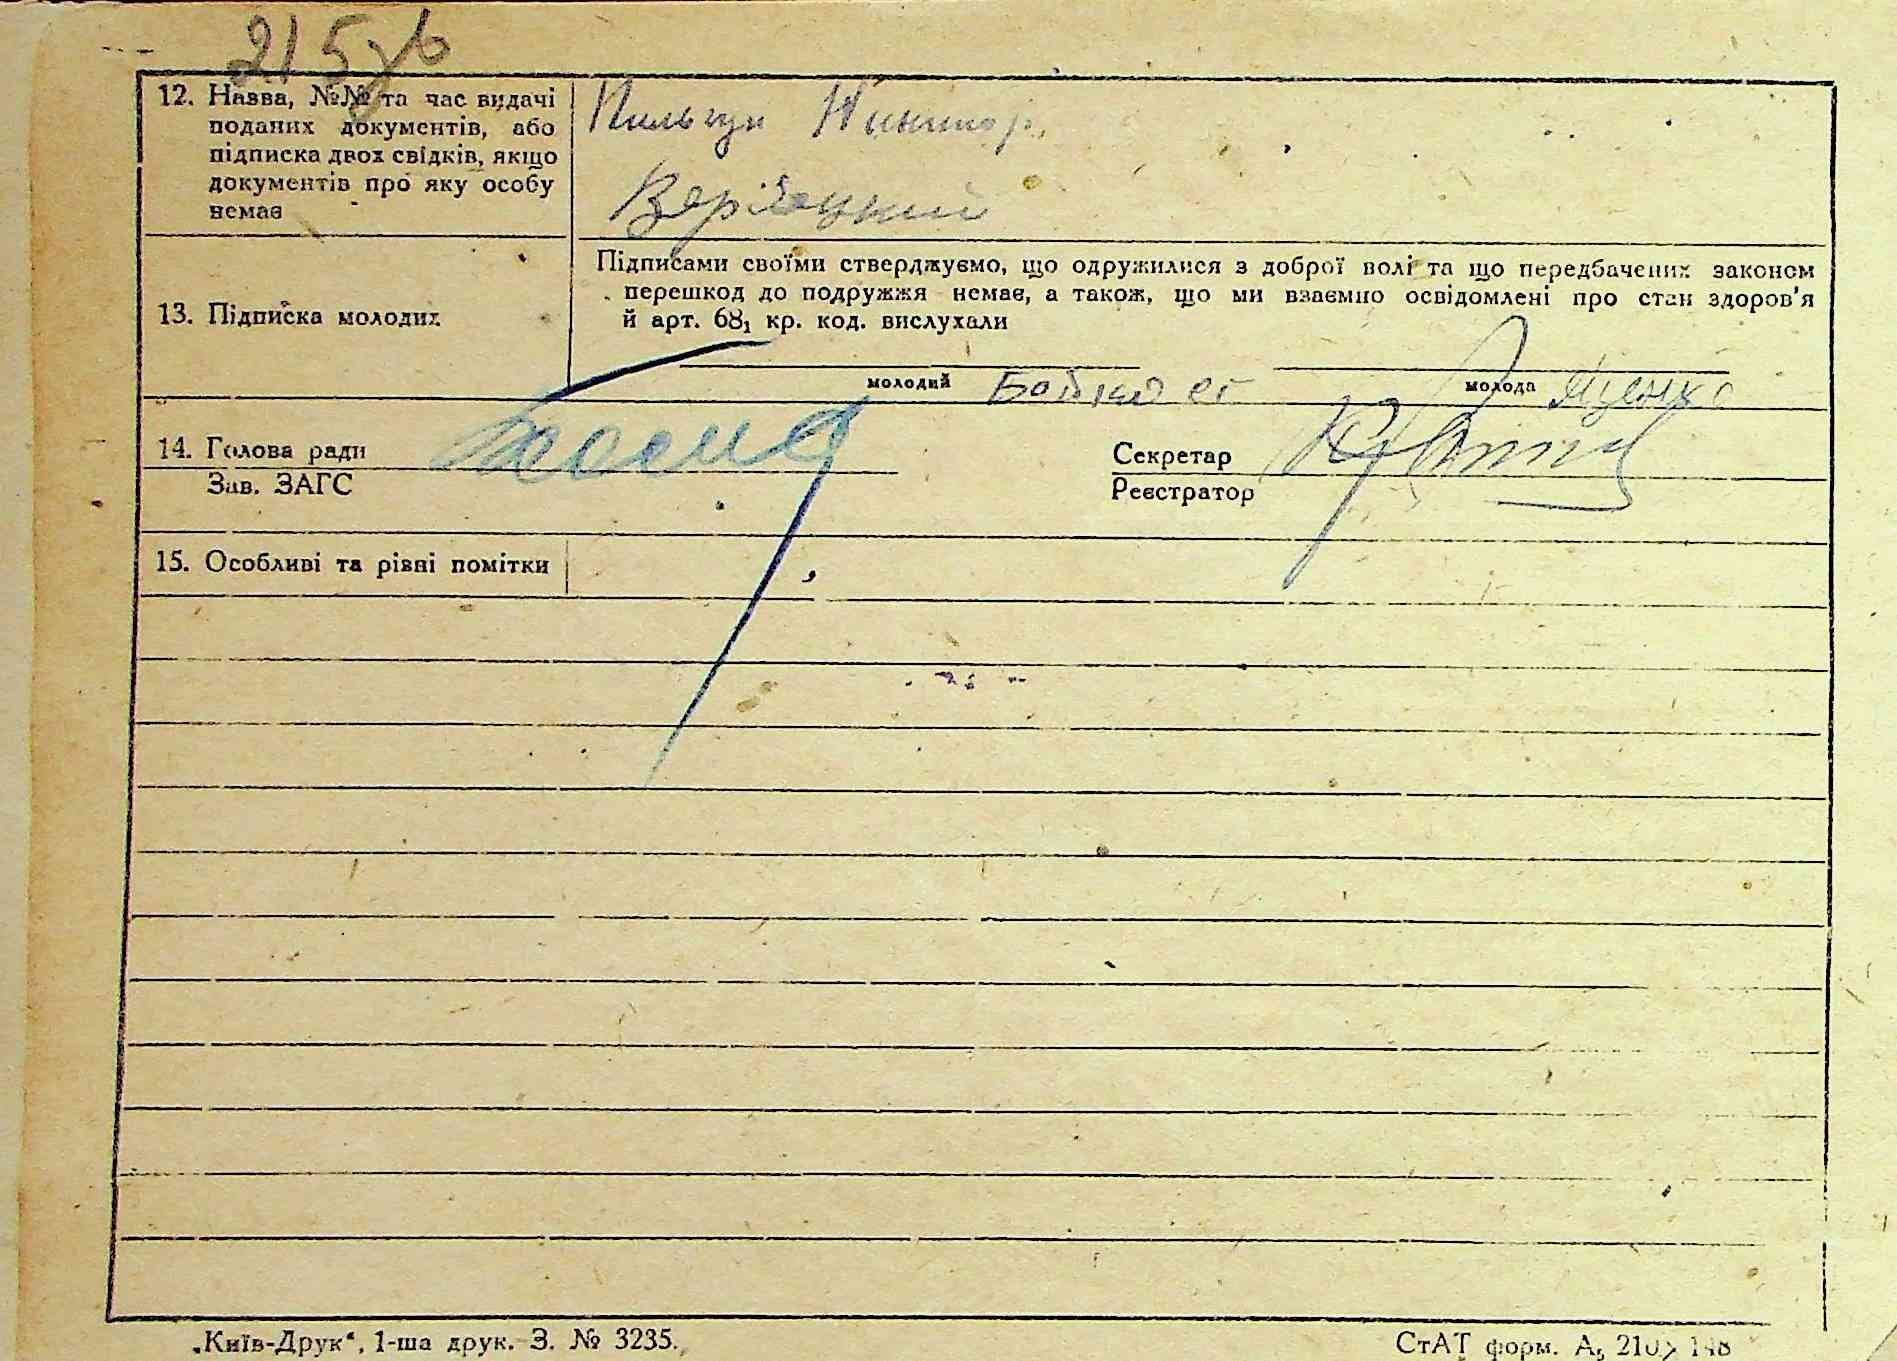 215 зв
12. Назва, №№ та час видачі
поданих документів, або
підписка двох свідків, якщо
документів про яку особу
немає
Пильгун
13. Підписка молодих
Підписами своїми стверджуємо, що одружилися з доброї волі та що передбачених законом
перешкод до подружжя немає, а також, що ми взаємно освідомлені про стан здоров'я
й арт. 68₁ кр. код. вислухали
молодий Бойко
молода Яценко
14. Голова ради
Зав. ЗАГС
Секретар
Реєстратор
15. Особливі та різні помітки
„Київ-Друк“, 1-ша друк. З. № 3235.
СтАТ форм. А₅ 210 148